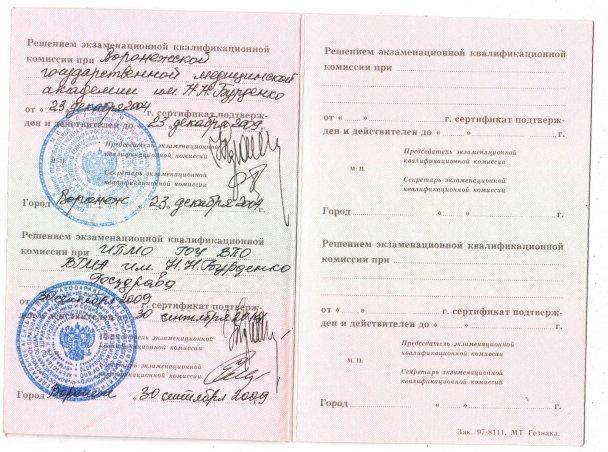 Решением экзаменационной квалификационной
комиссии при Воронежской
государственной медицинской
академии им. Н.Н. Бурденко
от « 23 декабря 2004 г. сертификат подтверж-
ден и действителен до « 23 декабря 2009 г.
Председатель экзаменационной
квалификационной комиссии
М. П.
Секретарь экзаменационной
квалификационной комиссии
Город Воронеж « 23 декабря 2004 г.
Решением экзаменационной квалификационной
комиссии при ИПМО ГОУ ВПО
ВГМА им. Н.Н. Бурденко
Росздрава
от 30 сентября 2009 г. сертификат подтверж-
ден и действителен до « 30 сентября
Председатель экзаменационной
квалификационной комиссии
Секретарь экзаменационной
квалификационной комиссии
Город Воронеж « 30 сентября 2009 г.
Решением экзаменационной квалификационной
комиссии при
от « » г. сертификат подтверж-
ден и действителен до « » г.
Председатель экзаменационной
квалификационной комиссии
М. П.
Секретарь экзаменационной
квалификационной комиссии
Город « » г.
Решением экзаменационной квалификационной
комиссии при
от « » г. сертификат подтверж-
ден и действителен до « » г.
Председатель экзаменационной
квалификационной комиссии
М. П.
Секретарь экзаменационной
квалификационной комиссии
Город « » г.
Зак. 97-8111. МТ Гознака.